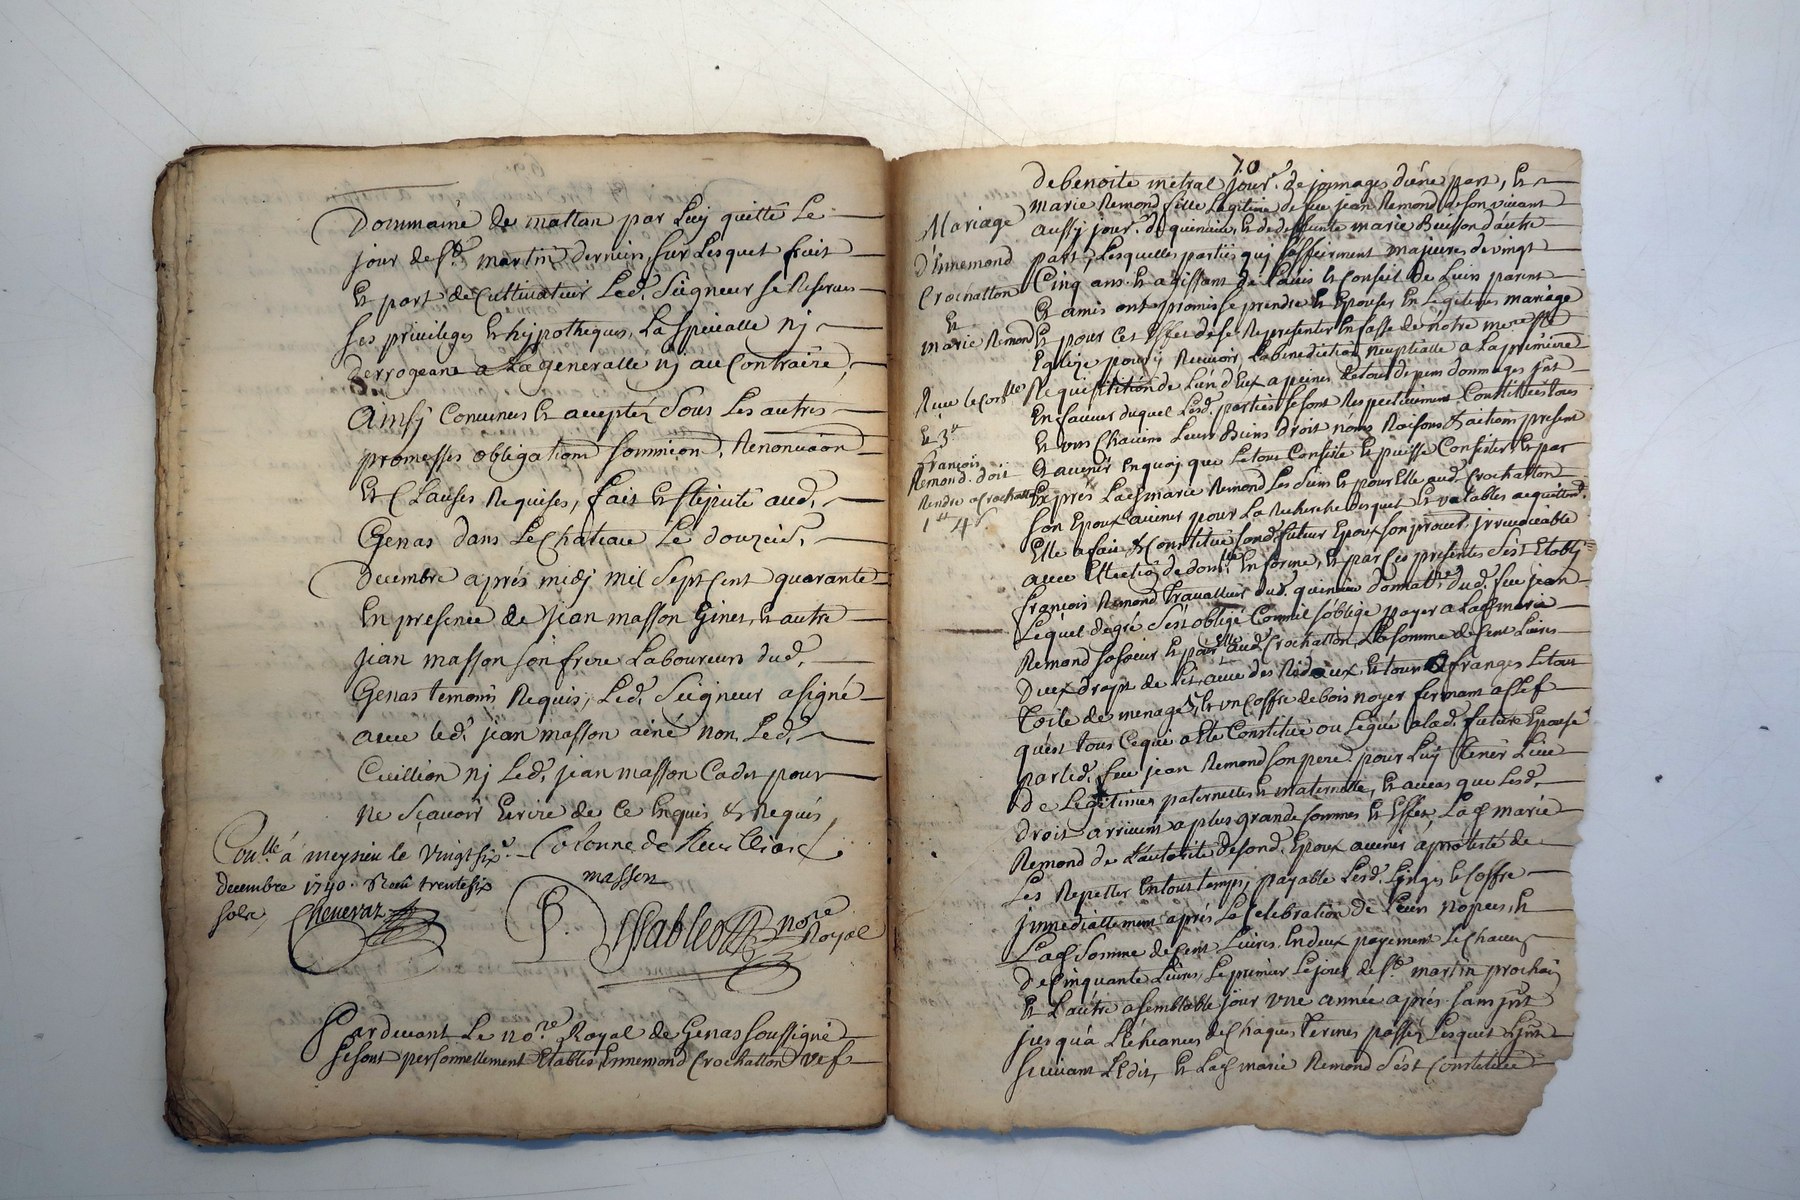 Dommaine de mattan par Luy quitté Le
jour de St. martin dernier, sur Lesquet fruit
Et part de Cultivateur Led. Seigneur se Reserve
ses privileges Et hypotheques, La specialle nj
derrogeane a La generalle nj au Contraire,
Ainsy Convenus Et accepté Sous Les autres
promesses obligations soumiĉon, Renonciaôn
Et Clauses Requises, fait Et stipulé aud.
Genas dans Le Chateau Le douzie.
Decembre aprés midj mil Sept Cent quarante
En presence de Jean masson Giner, Et autre
Jean masson son frere Laboureurs dud.
Genas temoins Requis, Led. Seigneur a signé
avec led. jean masson ainé non Led.
Cuillion nj Led. jean masson Cadet pour
ne Sçavoir Ecrire de Ce Enquis & Requis
Conlle á meysieu le Vingt six
decembre 1740. Reçu trente six
sols, Chenevaz
masson
nore Royal
Pardevant Le nore Royal de Genas soussigné
se sont personnellement Etablis Ennemond Crochatton vef
70
de benoite metral jour. de jonnages d'une part, Et
marie Remond fille Legitime de feu jean Remond de son vivant
aussy jour. de quenieu, Et de deffunte marie Buisson d'autre
part, Lesquelles parties quj s'affirment majeures de vingt
Cinq ans Et agissant de L'avis Et Conseil de Leurs parent
Et amis ont promis se prendre Et Epouser En Legitimes mariage
Et pour Cet Effet de se Representer En fasse de nôtre mere Ste
Eglize pour y Recevoir La benediction nuptialle a La premiere
Requisition de L'un d'Eux a peines de tous depens dommages Jnt
En faveur duquel Lesd. parties se sont Respectivement Constitués tous
Et uns Chacuns Leurs Biens droit noms Raisons & actions present
Et avenir En quoj que Le tout Consiste Et puisse Consister Et par
Exprés Lade marie Remond Les Siens Et pour Elle aud. Crochatton
son Epoux avenir pour La Recherche desquels Et valables acquittemt.
Elle a fait & Constitué sond. futeur Epoux son procur. jrrevocable
avec Ellection de domlle En forme, Et par Ces presentes s'est Etablj
françois Remond travailleur dud. quenieu donnatre dud. feu jean
Lequel de gré s'est obligé Comme s'oblige payer a Lade marie
Remond sa soeur Et pour Elle aud. Crochatton, La somme de Cent Livres
Deux draps de Lit, avec des Rideaux Et tour & franges Le tout
Toile de menage, Et un Coffre de bois noyer fermant a Clef
qu'est tous Ce qui a Eté Constitué ou Legué a lad. future Epouse
par led. feu jean Remond son pere pour Luy tenir Lieu
De Legitimes paternelles Et maternelle, Et au cas que Lesd.
droit arrivent a plus grande sommes Et Effet, Lade marie
Remond de L'autorité de sond. Epoux avenir a protesté de
Les Repetter En tout temps, payable Lesd. Linges Et Coffre
jmmediattement aprés La Celebration de Leurs nopces, Et
Lade Somme de Cent Livres En deux payement Le Chacun
de Cinquante Livres, Le premier Le jour de St. martin prochain
Et L'autre a semblable jour une année aprés sans jnt
jusqu'à L'Echeance de Chaques termes passés Lesquet
suivant L'Edit, Et Lade marie Remond s'est Constituée
Mariage
d'Ennemond
Crochatton
Et
marie Remond
Et 3#
françois
Remond doit
Rendre a Crochatton
1# 4s